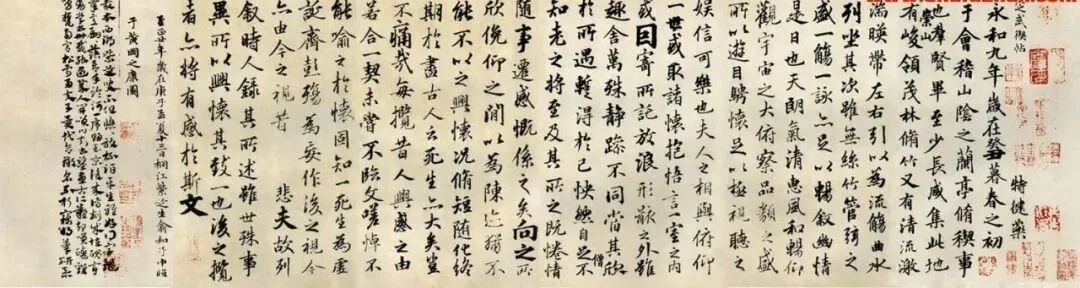 武禊帖
特健藥
永和九年歲在癸丑暮春之初
于會稽山陰之蘭亭脩禊事
也羣賢畢至少長咸集此地
崇山
有峻領茂林脩竹又有清流激
湍暎帶左右引以為流觴曲水
列坐其次雖無絲竹管弦之
盛一觴一詠亦足以暢敘幽情
是日也天朗氣清惠風和暢仰
觀宇宙之大俯察品類之盛
所以遊目騁懷足以極視聽之
娛信可樂也夫人之相與俯仰
一世或取諸懷抱悟言一室之內
或因寄所託放浪形骸之外雖
趣舍萬殊靜躁不同當其欣
於所遇蹔得於己快然自足不
僧
知老之將至及其所之既惓情
隨事遷感慨係之矣向之所
欣俛仰之閒以為陳迹猶不
能不以之興懷況脩短隨化終
期於盡古人云死生亦大矣豈
不痛哉每攬昔人興感之由
若合一契未嘗不臨文嗟悼不
能喻之於懷固知一死生為虛
誕齊彭殤為妄作後之視今
亦由今之視昔悲夫故列
敘時人錄其所述雖世殊事
異所以興懷其致一也後之攬
者亦將有感於斯文
至正廿年歲在庚子孟夏十三日桐江紫芝生俞和子中臨
于黃岡之康園